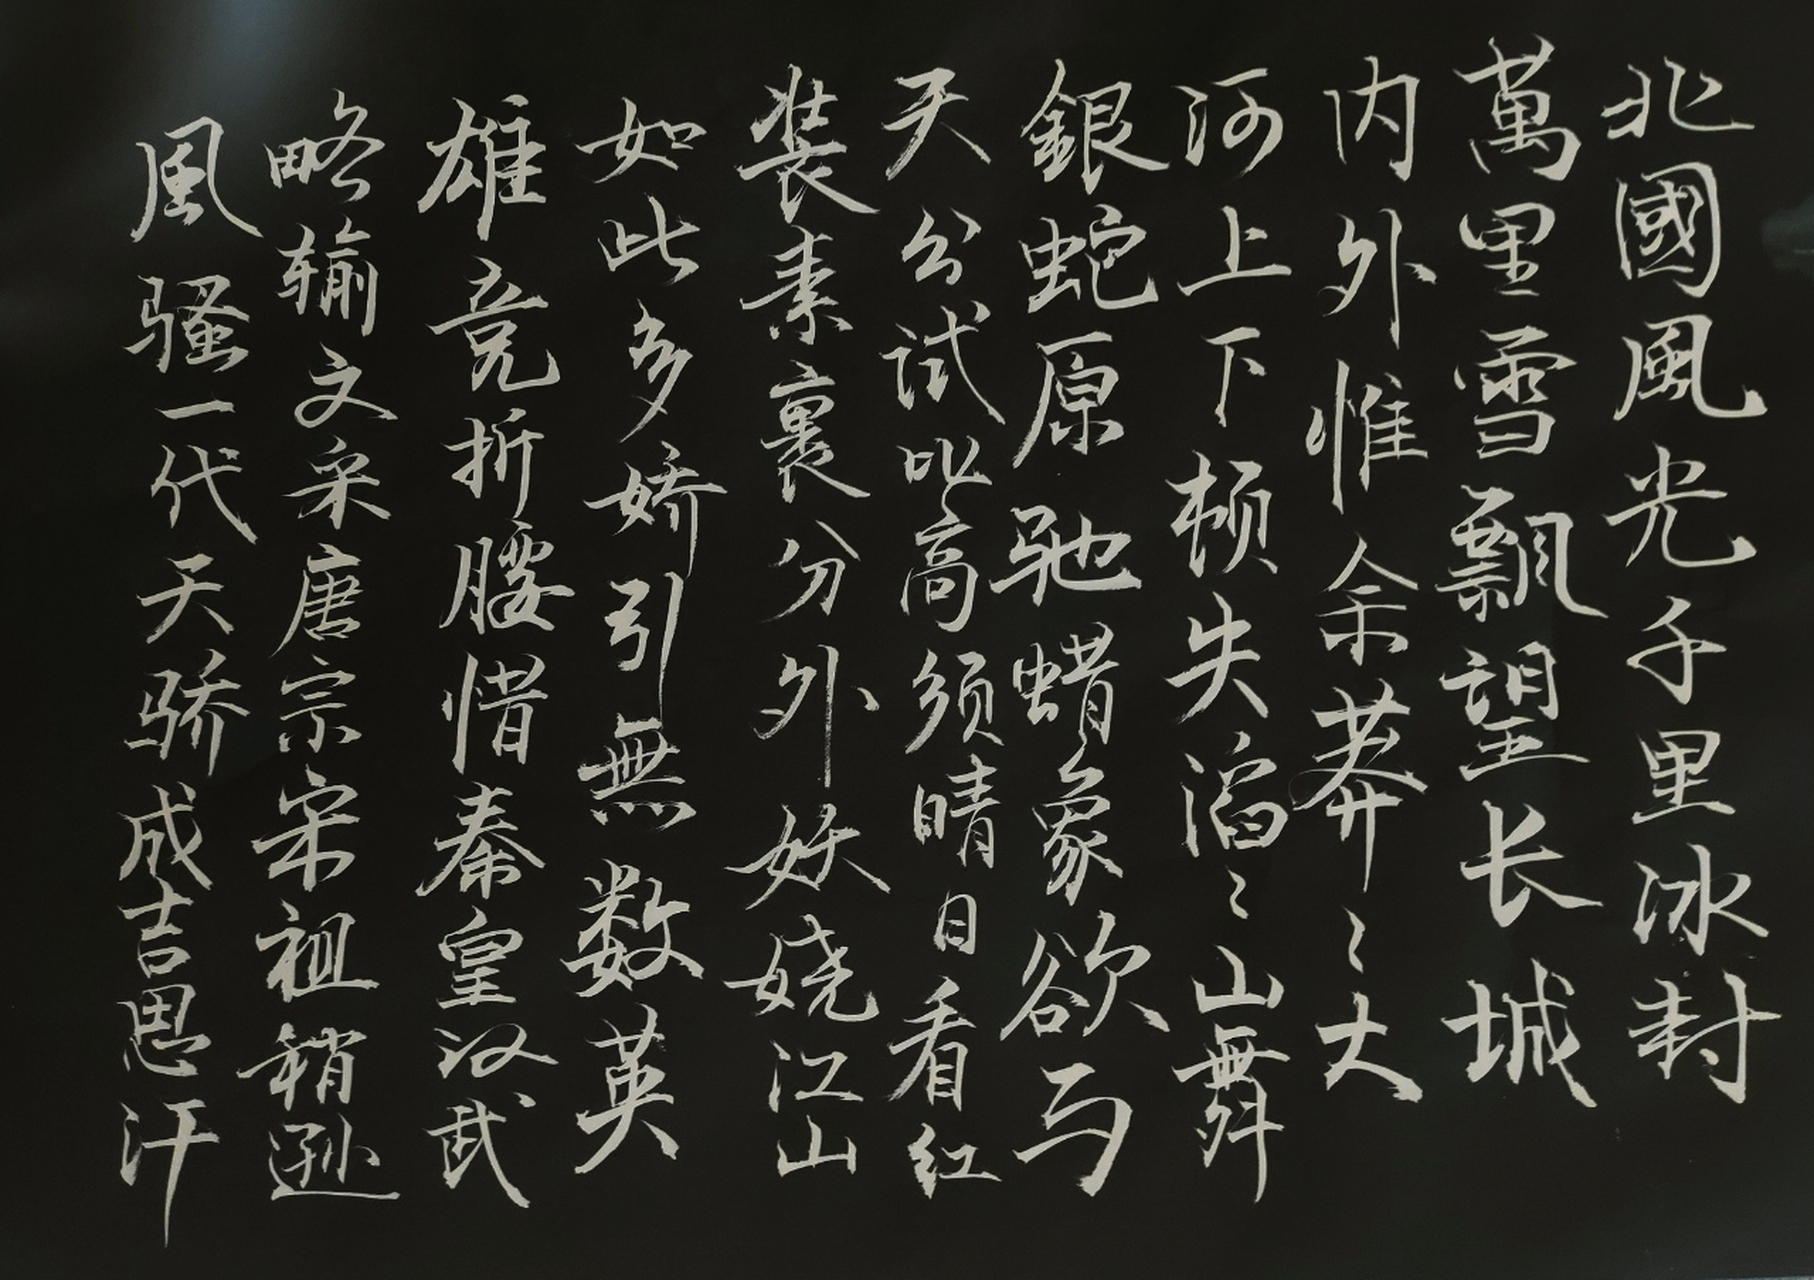 北國風光千里冰封
萬里雪飘望长城
内外惟余莽〻大
河上下顿失滔〻山舞
銀蛇原驰蜡象欲与
天公试比高须晴日看红
装素裹分外妖娆江山
如此多娇引無数英
雄竞折腰惜秦皇汉武
略输文采唐宗宋祖稍逊
風骚一代天骄成吉思汗